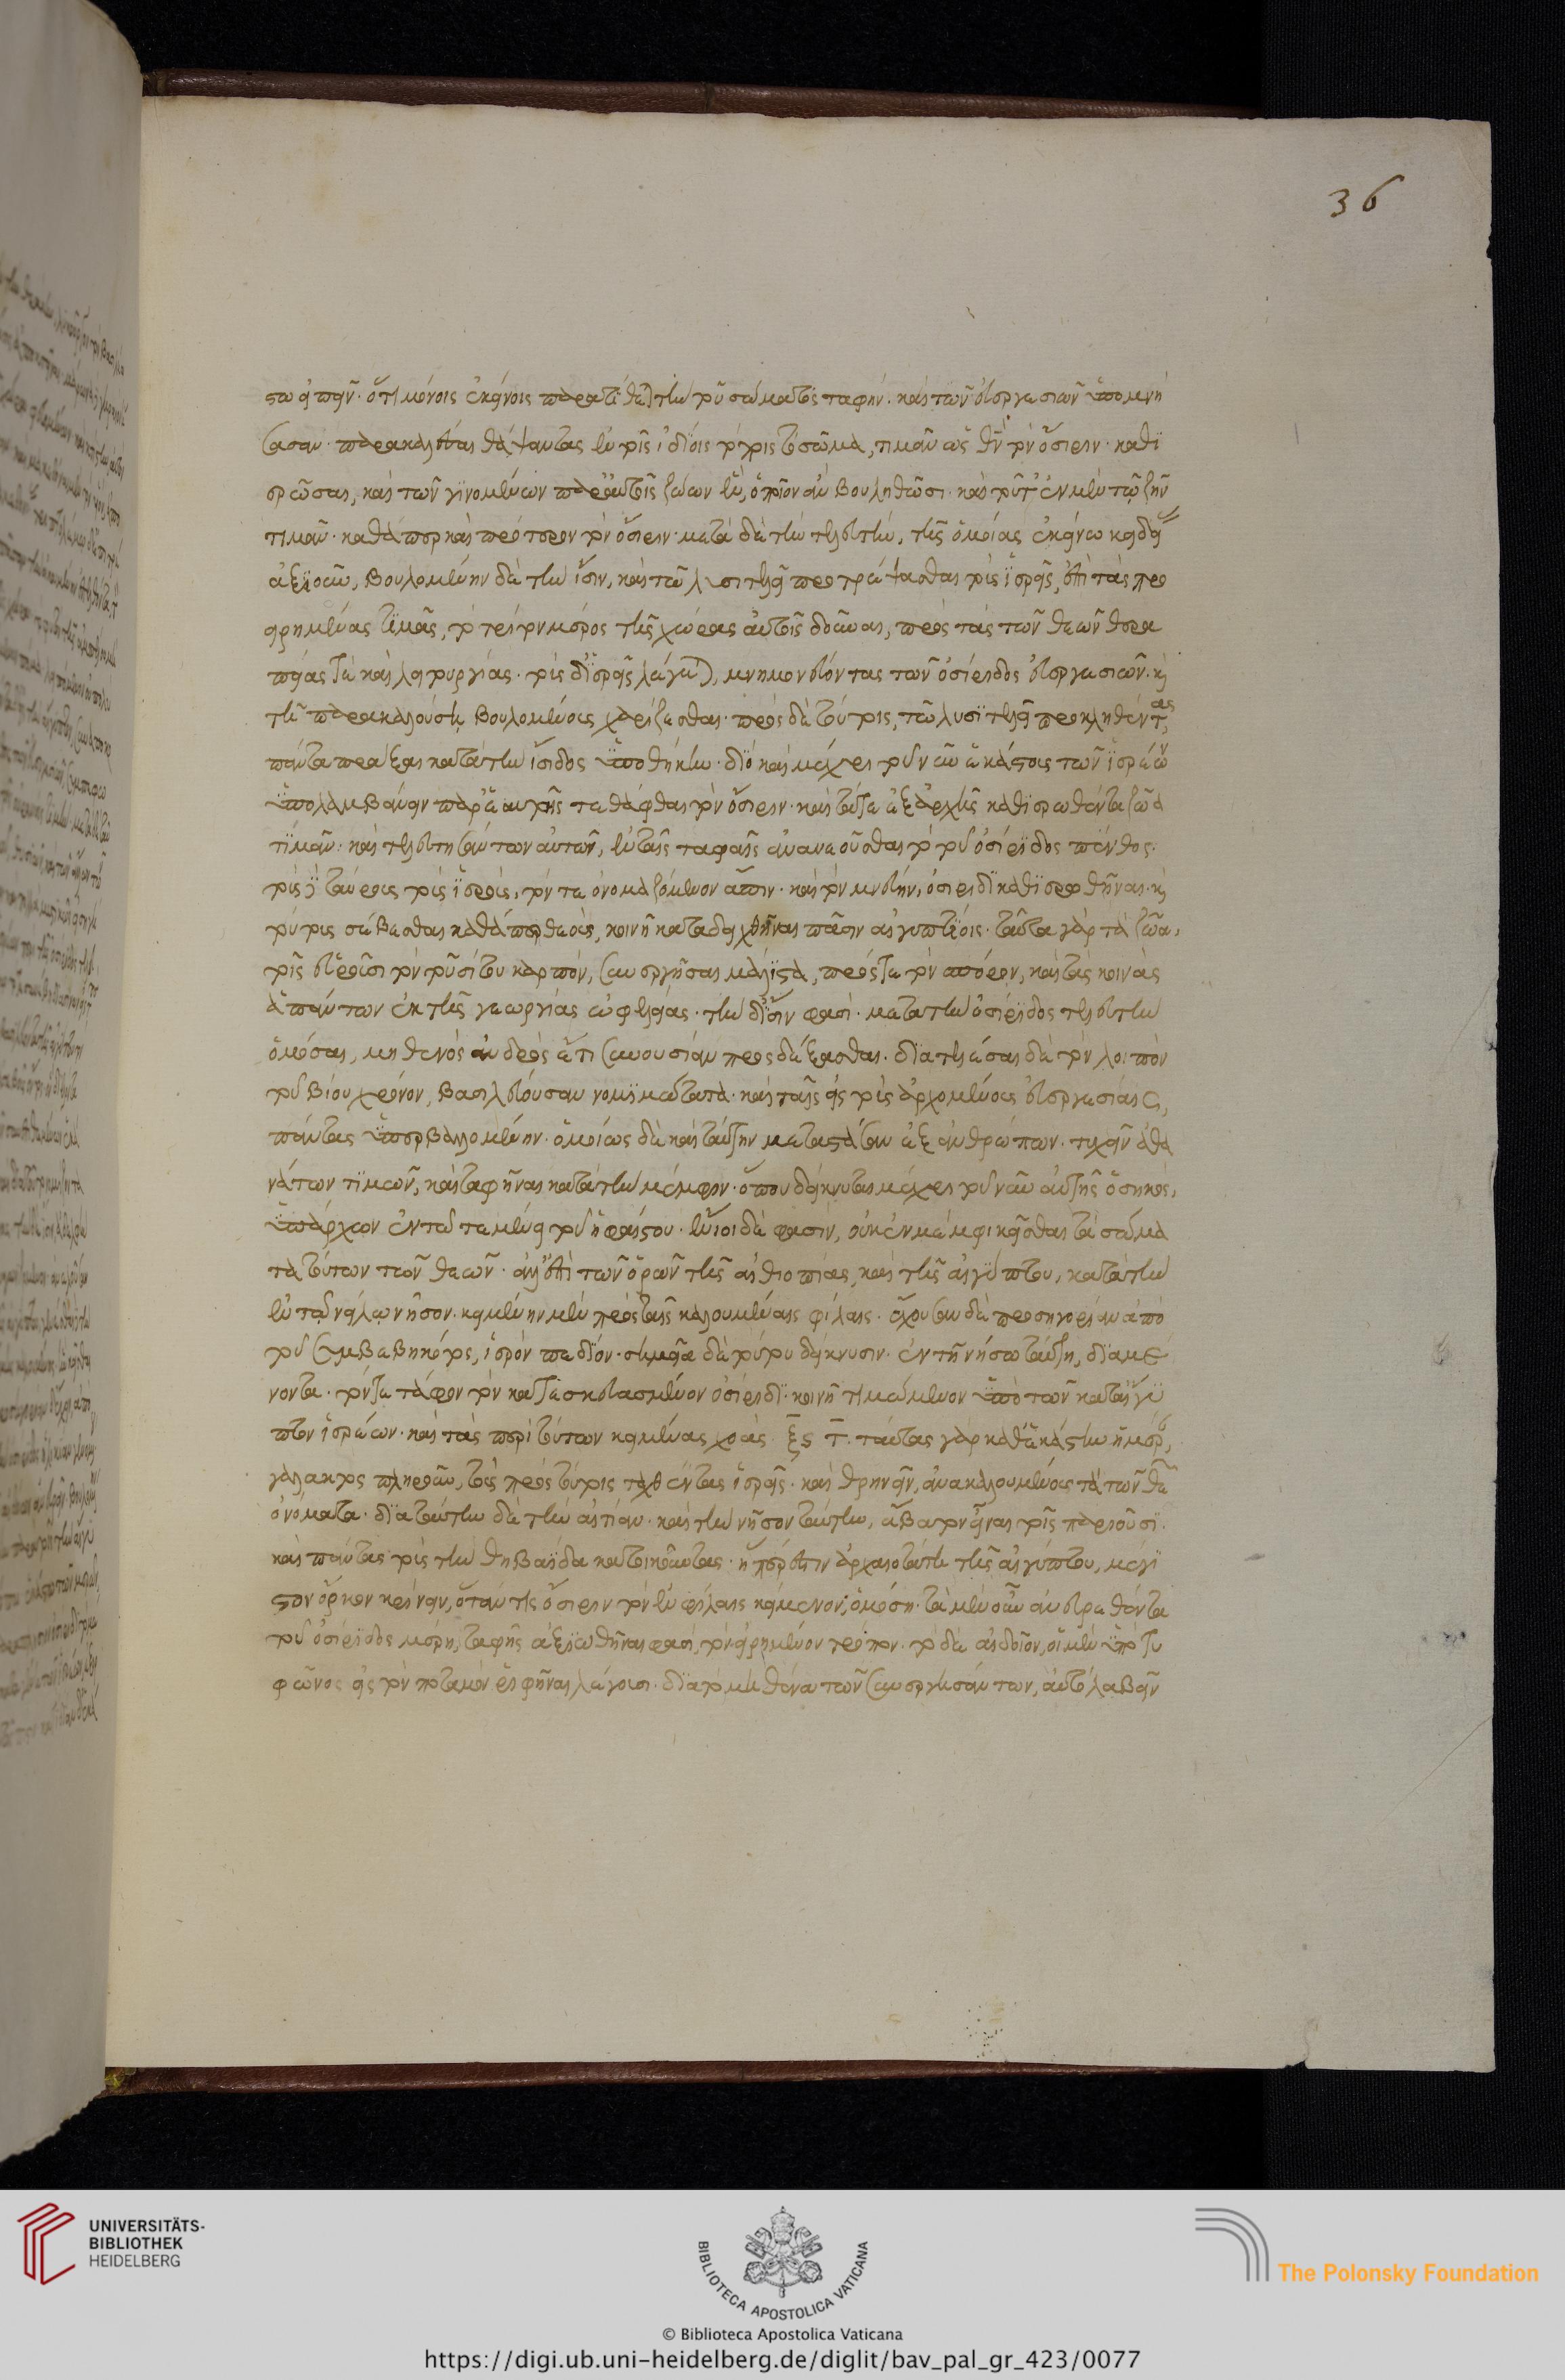 στω εἰπεῖν· ὅτι μόνοις ἐκείνοις παρατίθεται τὴν τοῦ σώματος ταφήν· καὶ τῶν εὐεργεσιῶν ὑπομνή
σασαν· παρακαλέσαι θάψαντας ἐν τοῖς ἰδίοις τόποις τὸ σῶμα, τιμᾶν ὡς θεὸν τὸν ὄσιριν· καθϊ
ερῶσαι, καὶ τῶν γινομένων παρ' αὐτοῖς ζώων ἓν, ὁποῖον ἂν βουληθῶσι· καὶ τοῦτ' ἐν μὲν τῷ ζῆν
τιμᾶν· καθάπερ καὶ πρότερον τὸν ὄσιριν· μετὰ δὲ τὴν τελευτὴν, τῆς ὁμοίας ἐκείνω κηδεί
ἀξιοῦν, βουλομένην δὲ τὴν ἶσιν, καὶ τῶ λυσιτελεῖ προτρέψασθαι τοὺς ἱερεῖς, ἐπὶ τὰς προ
ειρημένας τιμὰς, τὸ τρίτον μέρος τῆς χώρας αὐτοῖς δοῦναι, πρὸς τὰς τῶν θεῶν θερα
πείας τὲ καὶ λειτουργίας· τοὺς δ' ἱερεῖς λέγεται, μνημονεύοντας τῶν ὀσίριδος εὐεργεσιῶν· καὶ
τῆ παρακαλούση βουλομένους χαρίζεσθαι· πρὸς δὲ τούτοις, τῶ λυσιτελεῖ προκληθέντας,
πάντα πρᾶξαι κατὰ τὴν ἴσιδος ὑποθήκην· διὸ καὶ μέχρι τοῦ νῦν ἑκάστους τῶν ἱερέων
ὑπολαμβάνειν παρ' ἑαυτοῖς τεθάφθαι τὸν ὄσιριν· καὶ τά τε ἐξ ἀρχῆς καθιερωθέντα ζῶα
τιμᾶν· καὶ τελευτησάντων αὐτῶν, ἐν ταῖς ταφαῖς ἀνανεοῦσθαι τὸ τοῦ ὀσίριδος πένθος·
τοὺς δὲ ταύρους τοὺς ἱεροὺς, τόν τε ὀνομαζόμενον ἆπιν· καὶ τὸν μνευὴν, ὀσίριδι καθϊερωθῆναι· καὶ
τούτους σέβεσθαι καθάπερ θεοὺς, κοινῆ καταδειχθῆναι πᾶσιν αἰγυπτίοις· ταῦτα γὰρ τὰ ζῶα,
τοῖς εὑροῦσι τὸν τοῦ σίτου καρπὸν, συνεργῆσαι μάλιστα, πρός τε τὸν σπόρον, καὶ τὰς κοινὰς
ἁπάντων ἐκ τῆς γεωργίας ὠφελείας· τὴν δ' ἶσιν φασὶ· μετὰ τὴν ὀσίριδος τελευτὴν
ὀμόσαι, μηθενὸς ἀνδρὸς ἔτι συνουσίαν προσδέξασθαι· διατελέσαι δὲ τὸν λοιπὸν
τοῦ βίου χρόνον, βασιλεύουσαν νομιμώτατα· καὶ ταῖς εἰς τοὺς ἀρχομένους εὐεργεσίαις,
πάντας ὑπερβαλλομένην· ὁμοίως δὲ καὶ ταύτην μεταστᾶσαν ἐξ ἀνθρώπων· τυχεῖν ἀθα
νάτων τιμῶν, καὶ ταφῆναι κατὰ τὴν μέμφιν· ὅπου δείκνυται μέχρι τοῦ νῦν αὐτῆς ὁ σηκὸς,
ὑπάρχων ἐν τῶ τεμένει τοῦ ἡφαίστου· ἔνιοι δέ φασιν, οὐκ ἐν μέμφι κεῖσθαι τὰ σώμα
τα τούτων τῶν θεῶν· ἀλλ' ἐπὶ τῶν ὅρων τῆς αἰθιοπίας, καὶ τῆς αἰγύπτου, κατὰ τὴν
ἐν τῶ νείλω νῆσον· κειμένην μὲν πρὸς ταῖς καλουμέναις φίλαις· ἔχουσαν δὲ προσηγορίαν ἀπὸ
τοῦ συμβεβηκότος, ἱερὸν πεδίον· σημεῖα δὲ τούτου δείκνυσιν· ἐν τῆ νήσω ταύτη, διαμέ
νοντα· τόν τε τάφον τὸν κατεσκευασμένον ὀσίριδι· κοινῆ τιμώμενον ὑπὸ τῶν κατ' αἴγυ
πτον ἱερέων· καὶ τὰς περὶ τοῦτον κειμένας χοὰς ξ̅ς̅ τ̅· ταύτας γὰρ καθ' ἑκάστην ἡμέραν,
γάλακτος πληροῦν, τοὺς πρὸς τούτοις ταχθέντας ἱερεῖς· καὶ θρηνεῖν, ἀνακαλουμένους τὰ τῶν θεῶν
ὀνόματα· διὰ ταύτην δὲ τὴν αἰτίαν· καὶ τὴν νῆσον ταύτην, ἄβατον εἶναι τοῖς παριοῦσι·
καὶ πάντας τοὺς τὴν θηβαΐδα κατοικοῦντας· ἥπερ ἐστὶν ἀρχαιοτάτη τῆς αἰγύπτου, μέγι
στον ὅρκον κρίνειν, ὅταν τις ὄσιριν τὸν ἐν φίλαις κείμενον, ὀμόση· τὰ μὲν οὖν ἀνευρεθέντα
τοῦ ὀσίριδος μέρη, ταφῆς ἀξιωθῆναι φασὶ, τὸν εἰρημένον τρόπον· τὸ δὲ αἰδοῖον, οἱ μὲν ὑπὸ τυ
φῶνος εἰς τὸν ποταμὸν ῥιφῆναι λέγουσι· διὰ τὸ μηθένα τῶν συνεργησάντων, αὐτὸ λαβεῖν
36
UNIVERSITÄTS-
BIBLIOTHEK
HEIDELBERG
BIBLIOTECA APOSTOLICA VATICANA
The Polonsky Foundation
© Biblioteca Apostolica Vaticana
https://digi.ub.uni-heidelberg.de/diglit/bav_pal_gr_423/0077